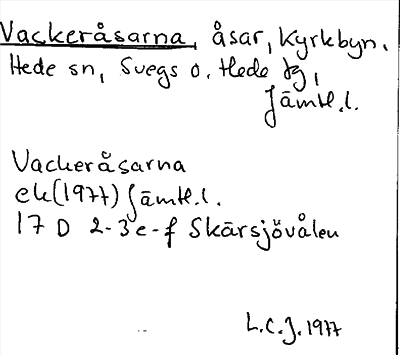 Vackeråsarna, åsar, Kyrkbyn,
Hede sn, Svegs o. Hede tg,
Jämtl.l.
Vackeråsarna
ek(1977) Jämtl.l.
17 D 2-3e-f Skärsjövålen
L.C.J. 1977